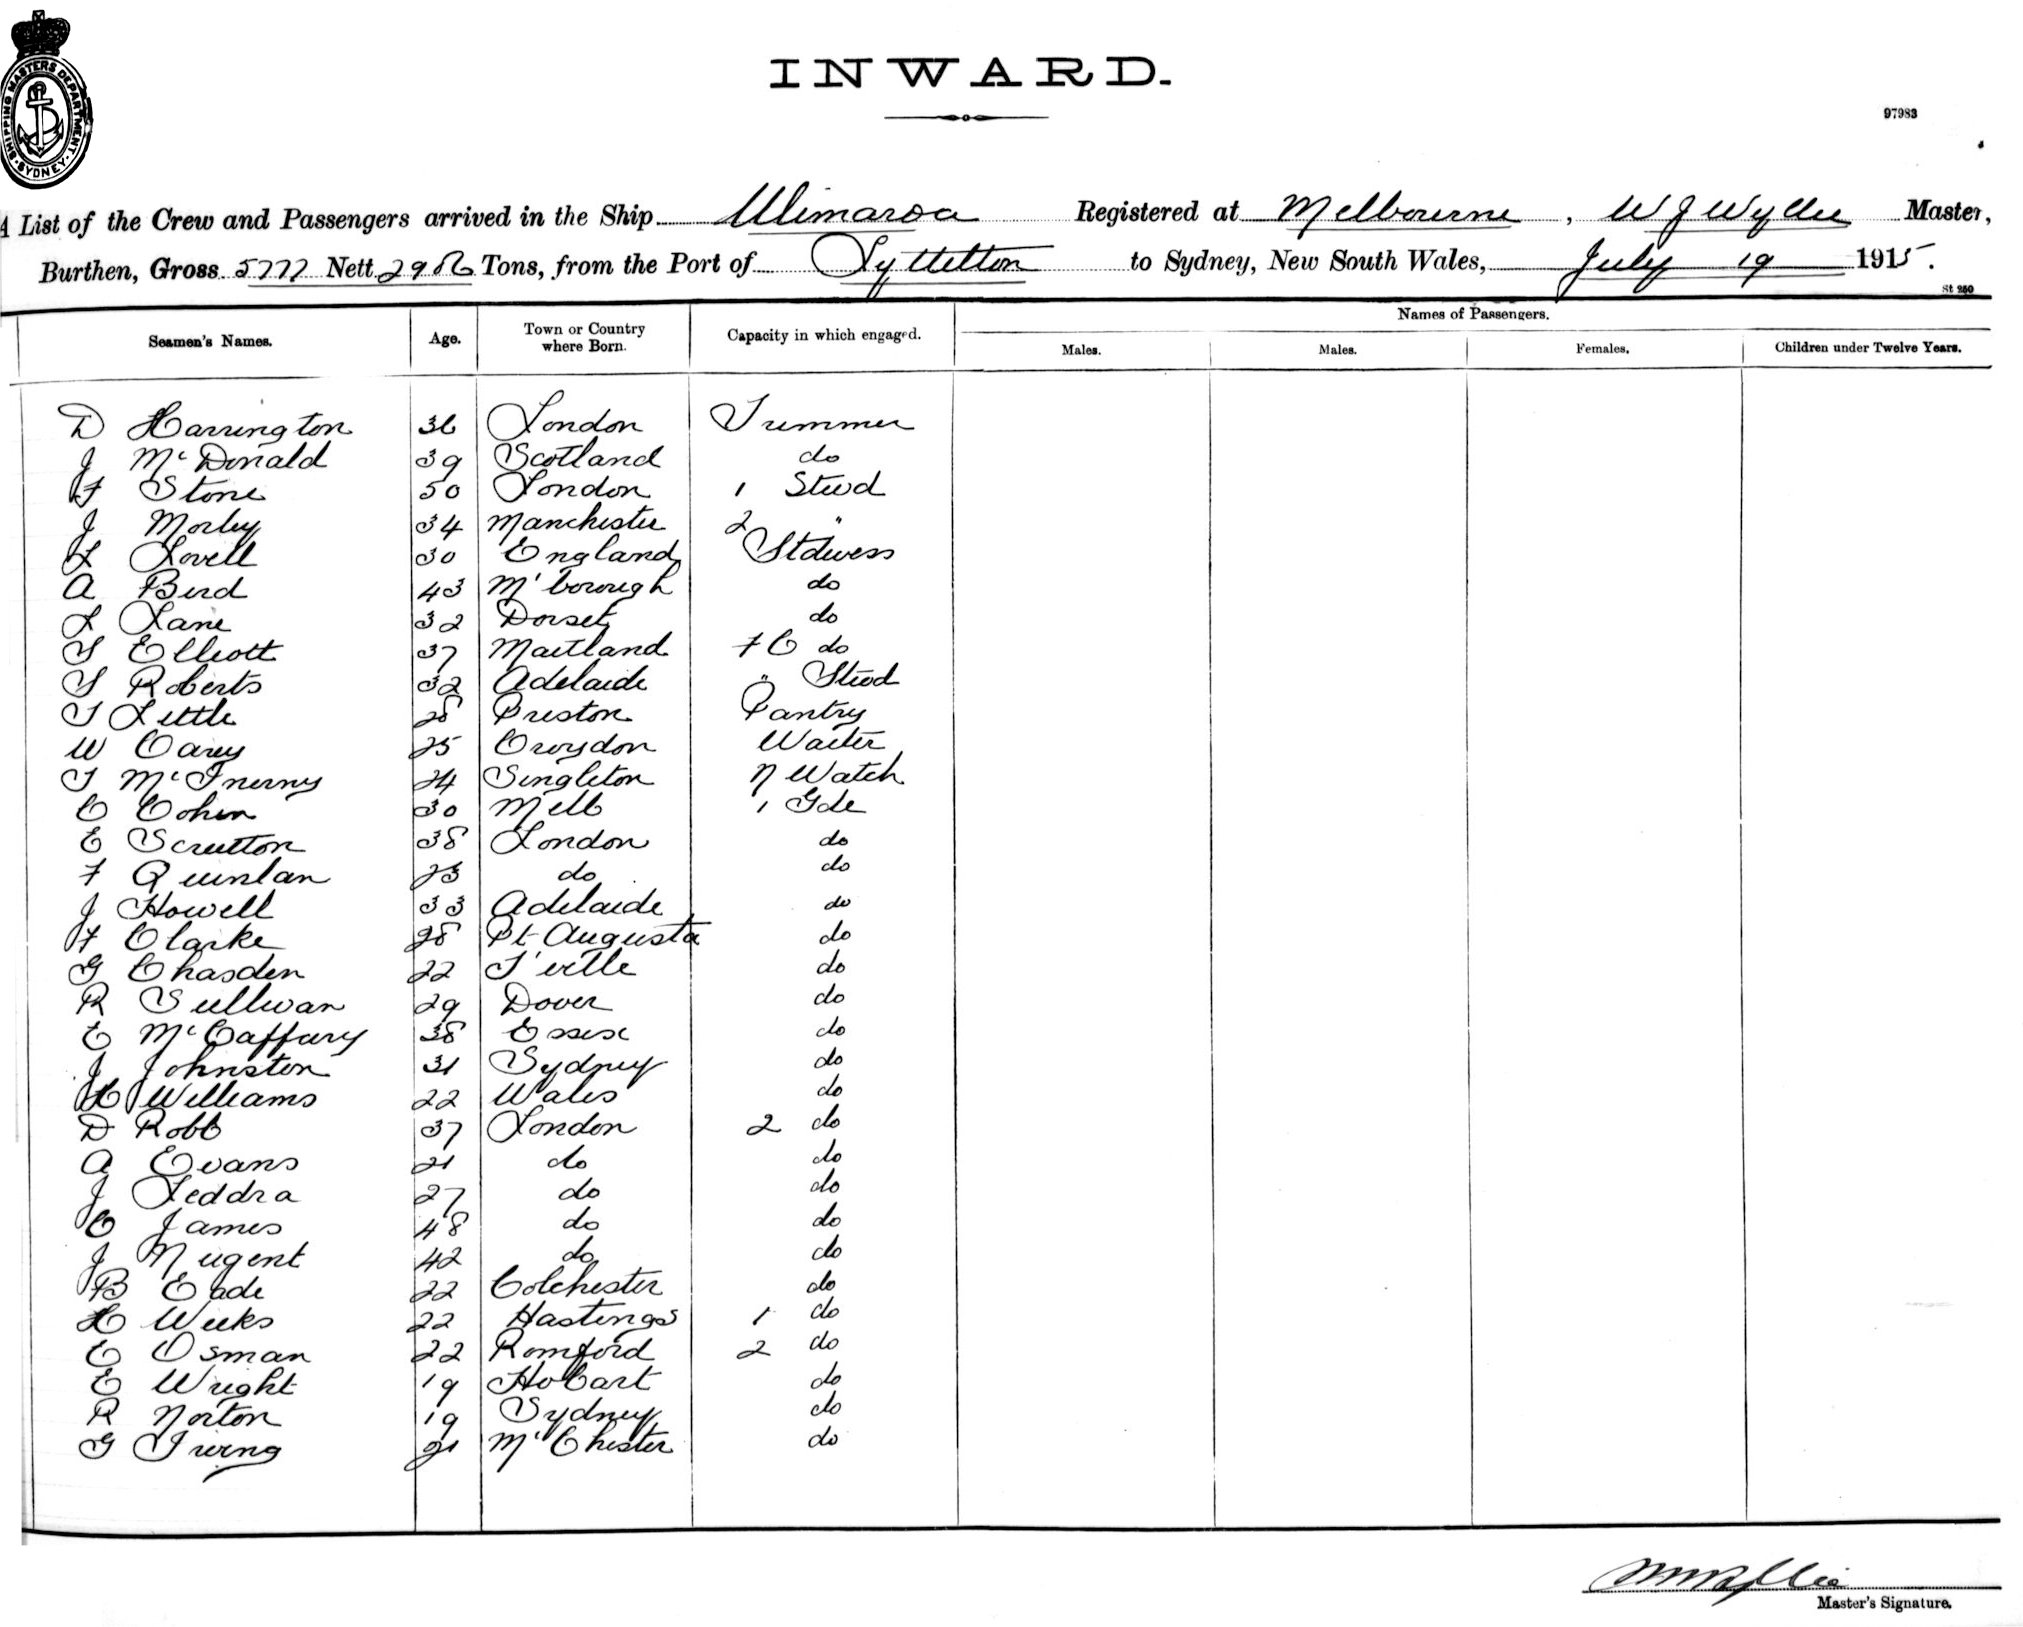 SHIPPING MASTERS DEPARTMENT
SYDNEY
INWARD.
97983
A List of the Crew and Passengers arrived in the Ship Ulimaroa Registered at Melbourne, W J Wyllie Master,
Burthen, Gross 5777 Nett Tons, from the Port of Lyttelton to Sydney, New South Wales, July 19 1915.
St 250
Names of Passengers.
Seamen's Names. Age. Town or Country where Born. Capacity in which engaged. Males. Males. Females. Children under Twelve Years.
D Harrington 36 London Trimmer
J McDonald 39 Scotland do
F Stone 50 London 1 Stewd
J Morley 34 Manchester 2 "
L Lovell 30 England Stdwess
A Bird 43 M'borough do
L Lane 32 Dorset do
S Elliott 37 Maitland F C do
S Roberts 32 Adelaide " Stewd
T Little 28 Preston Pantry
W Carey 25 Croydon Waiter
T McInerny 24 Singleton N Watch
C Cohen 30 Melb 1 Gde
E Scrutton 38 London do
F Quinlan 23 do do
J Howell 33 Adelaide do
F Clarke 28 Pt Augusta do
G Chasden 22 T'ville do
R Sullivan 29 Dover do
E McCaffary 38 Essex do
J Johnston 31 Sydney do
H Williams 22 Wales do
D Robb 37 London 2 do
A Evans 21 do do
J Leddra 27 do do
C James 48 do do
J Nugent 42 do do
B Eade 22 Colchester do
H Weeks 22 Hastings 1 do
E Osman 22 Romford 2 do
E Wright 19 Hobart do
R Norton 19 Sydney do
G Irving 21 M'Chester do
Master's Signature.